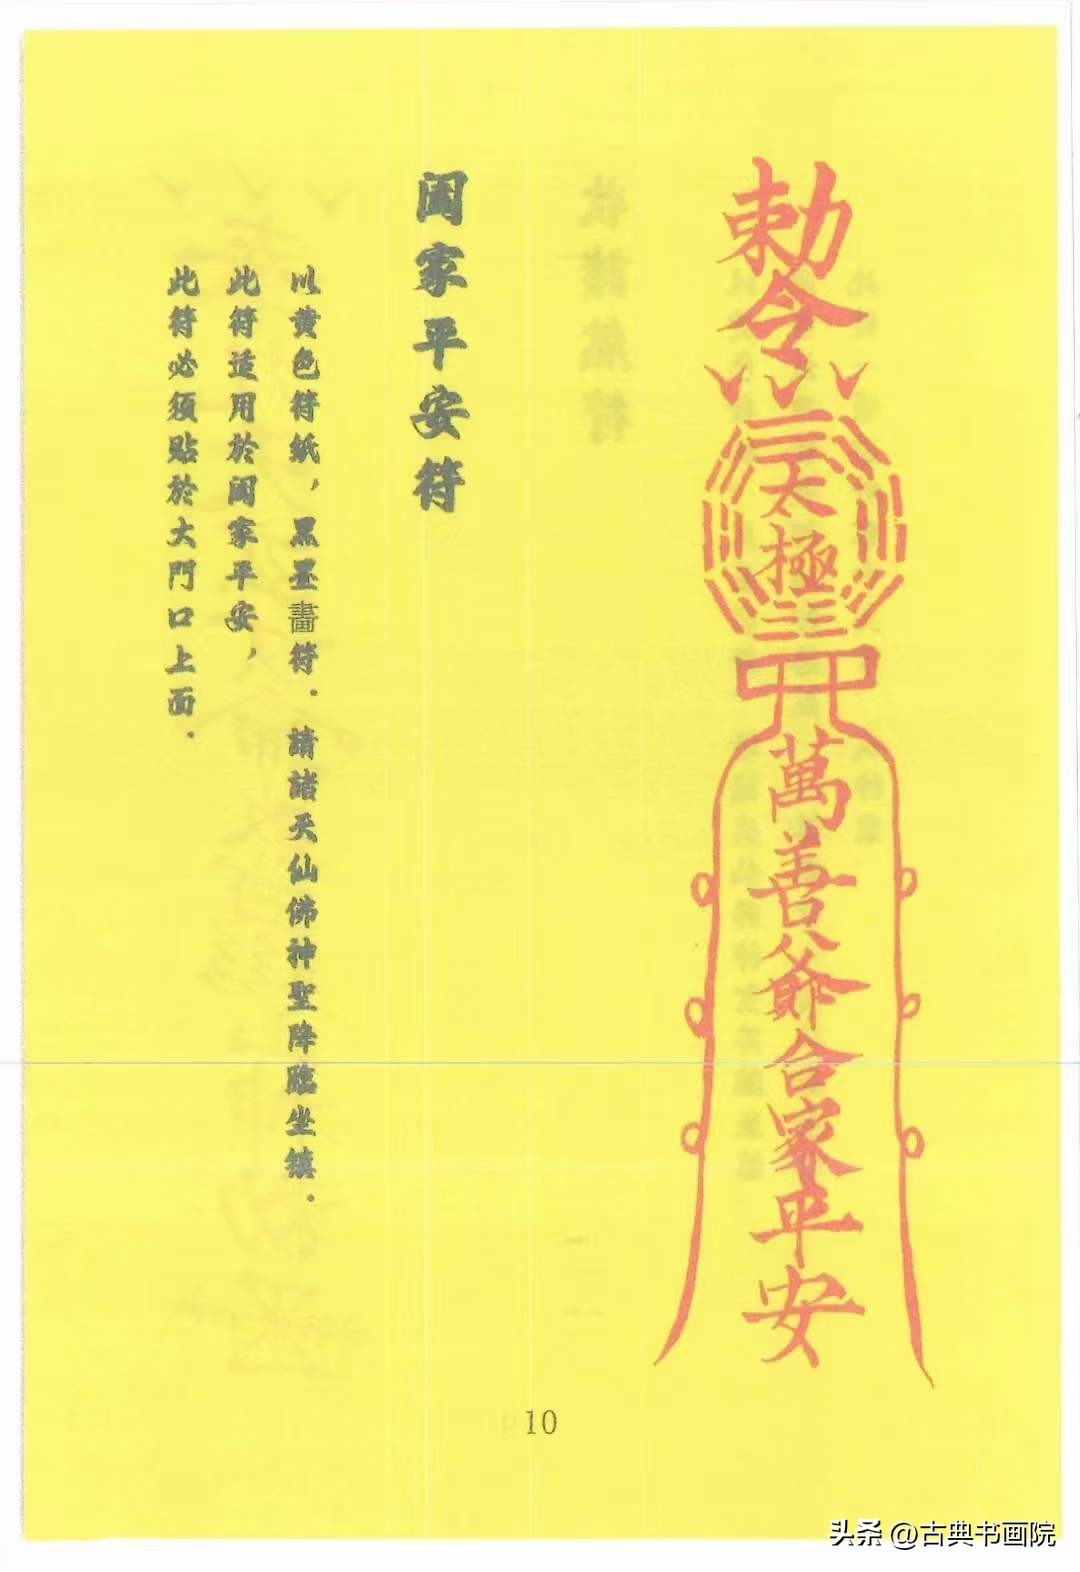 勅令
太極
萬善爺合家平安
闔家平安符
以黄色符紙，黑墨畵符．請諸天仙佛神聖降臨坐鎮．
此符适用於闔家平安，
此符必須貼於大門口上面．
10
头条 @古典书画院